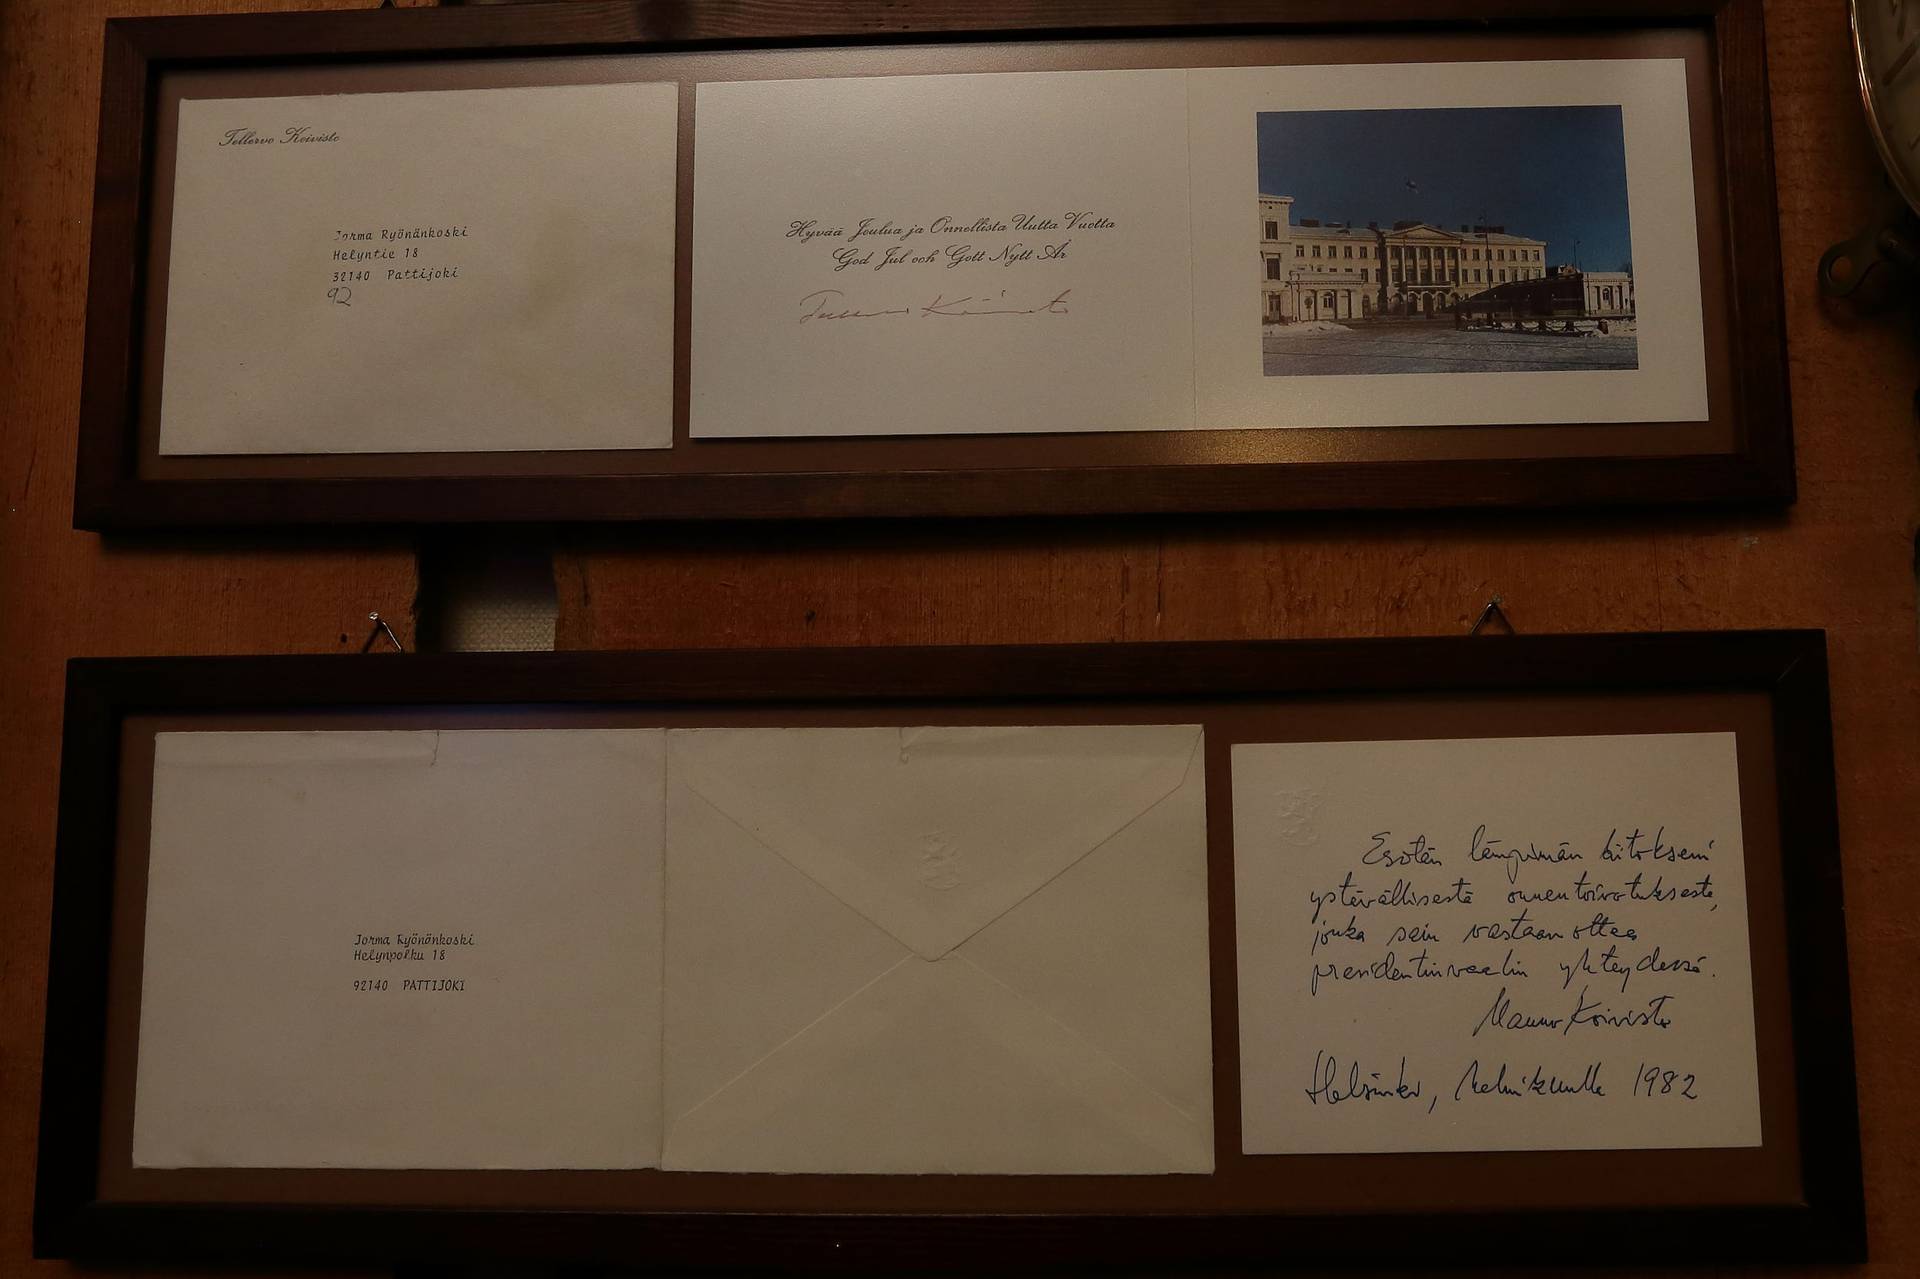 Tellervo Koivisto
Jorma Ryönänkoski
Helyntie 18
32140 Pattijoki
92
Hyvää Joulua ja Onnellista Uutta Vuotta
God Jul och Gott Nytt År
Tellervo Koivisto
Jorma Ryönänkoski
Helynpolku 18
92140 PATTIJOKI
Esitän lämpimän kiitokseni
ystävällisestä onnentoivotuksesta,
jonka sain vastaanottaa
presidentinvaalin yhteydessä.
Mauno Koivisto
Helsinki, helmikuulla 1982